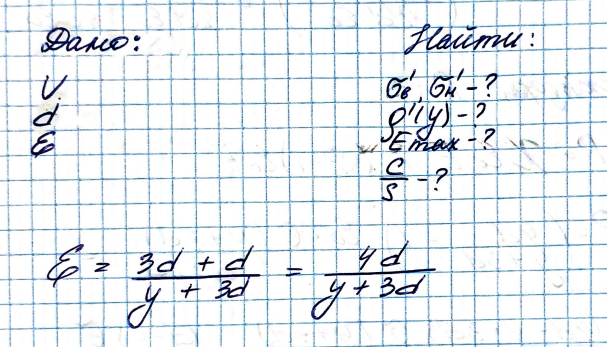 Дано: Найти:
V σв', σн' - ?
d ρ'(y) - ?
ε Emax - ?
C/S - ?
ε = (3d + d)/(y + 3d) = 4d/(y + 3d)